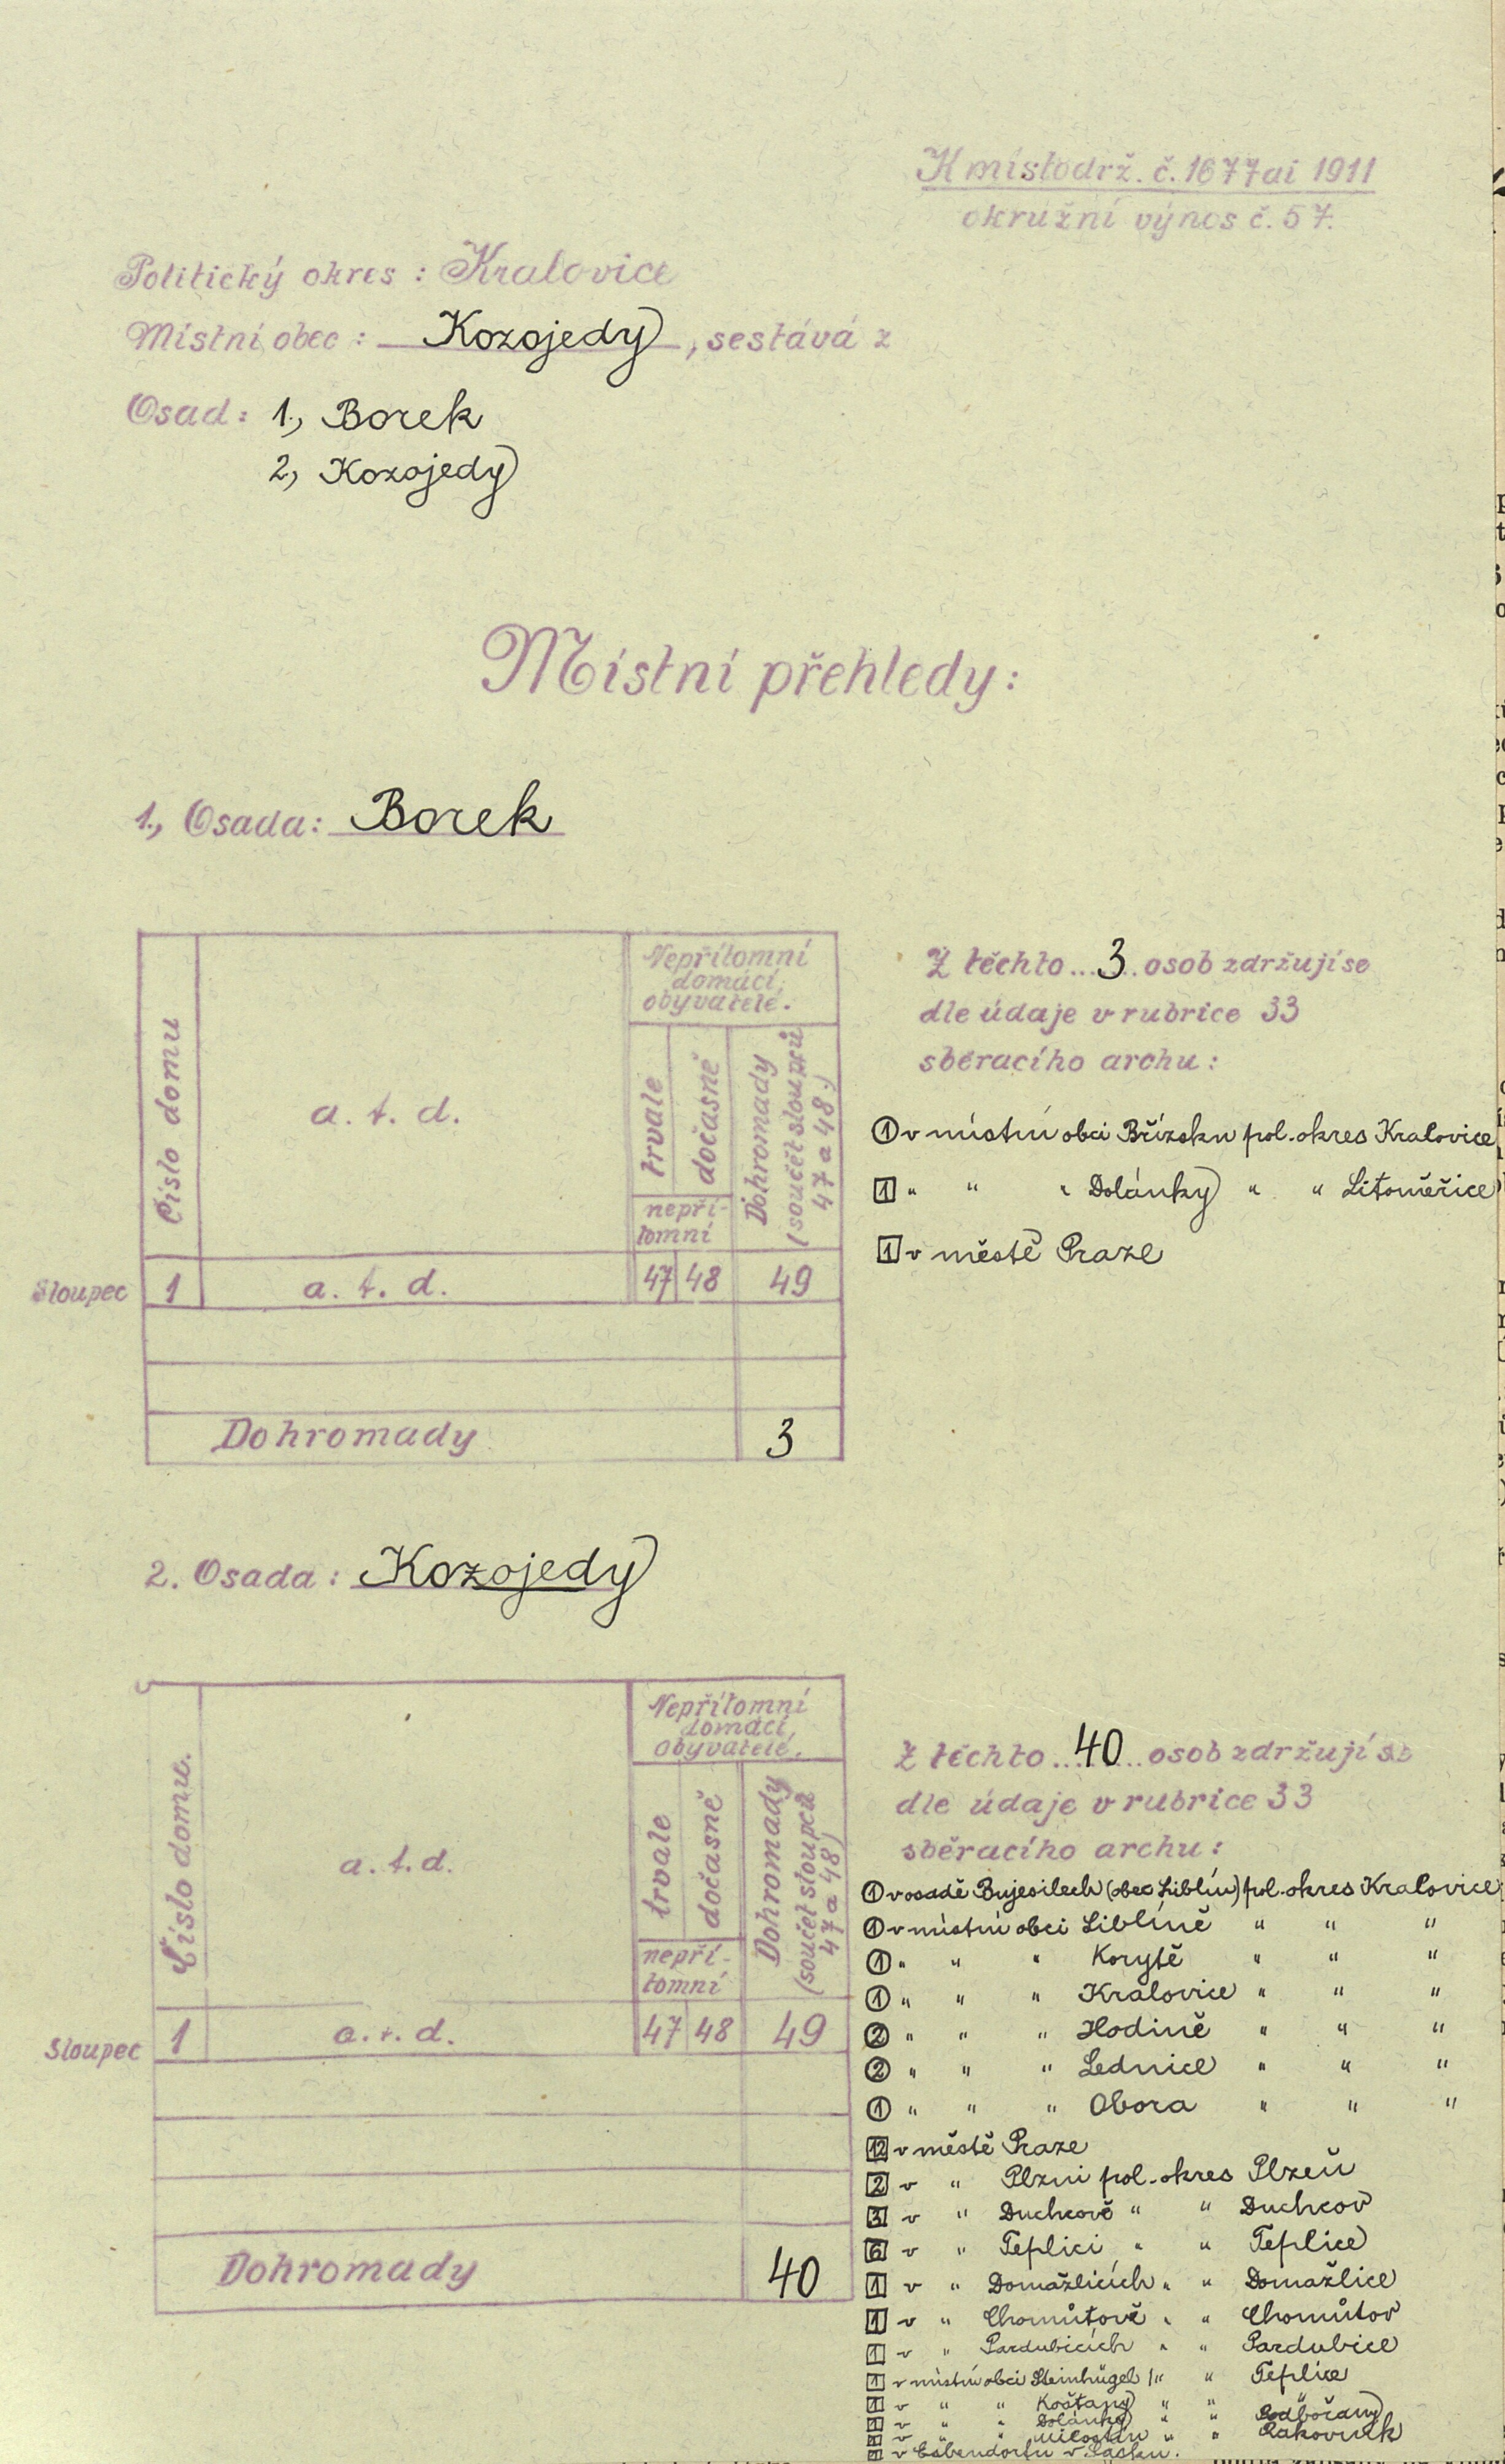 K místodrž. č. 1677 ai 1911
okružní výnos č. 57.
Politický okres : Kralovice
Místní obec : Kozojedy, sestává z
Osad: 1., Borek
2., Kozojedy
Místní přehledy:
1., Osada: Borek
Číslo domu
a. t. d.
Nepřítomní
domácí
obyvatelé.
trvale
dočasně
nepří-
tomní
Dohromady
(součet sloupců
47 a 48.)
Sloupec 1 a. t. d. 47 48 49
Dohromady 3
Z těchto...3...osob zdržují se
dle údaje v rubrice 33
sběracího archu :
1 v místní obci Břízsku pol. okres Kralovice
1 " " " Dolánky " " Litoměřice
1 v městě Praze
2. Osada : Kozojedy
Číslo domu.
a. t. d.
Nepřítomní
domácí
obyvatelé.
trvale
dočasně
nepří-
tomní
Dohromady
(součet sloupců
47 a 48)
Sloupec 1 a. t. d. 47 48 49
Dohromady 40
Z těchto...40...osob zdržují se
dle údaje v rubrice 33
sběracího archu :
1 v osadě Bujesilech (obec Liblín) pol. okres Kralovice
1 v místní obci Liblíně " " "
1 " " " Korytě " " "
1 " " " Kralovice " " "
2 " " " Hodině " " "
2 " " " Lednice " " "
1 " " " Obora " " "
12 v městě Praze
2 v " Plzni pol. okres Plzeň
3 v " Duchcově " " Duchcov
6 v " Teplici " " Teplice
1 v " Domažlicích " " Domažlice
1 v " Chomůtově " " Chomůtov
1 v " Pardubicích " " Pardubice
1 v místní obci Steinhügel " " Teplice
1 v " " Košťany " "
1 v " " Dolánky " " Podbořany
1 v " " Milostín " " Rakovník
v v Sasku.